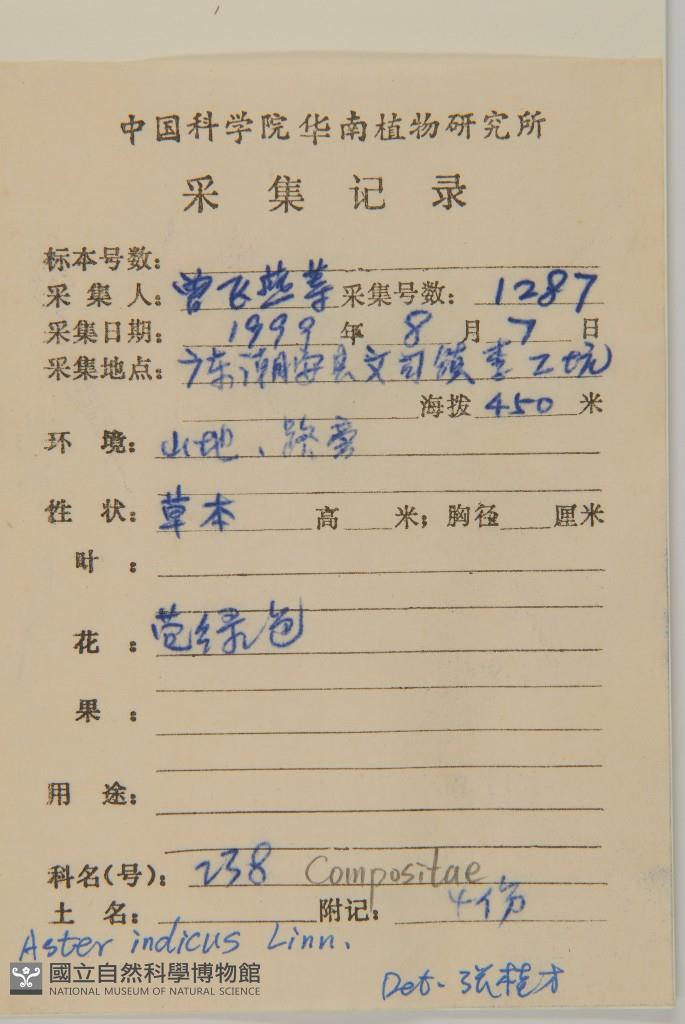 中国科学院华南植物研究所
采集记录
标本号数：
采集人：曾飞燕等 采集号数：1287
采集日期：1999年8月7日
采集地点：广东潮安县文司镇李工坑
海拨 450 米
环境：山地、路旁
性状：草本 高 米；胸径 厘米
叶：
花：苞绿色
果：
用途：
科名(号)：238 Compositae
土名： 附记：4份
Aster indicus Linn.
Det. 张桂才
國立自然科學博物館
NATIONAL MUSEUM OF NATURAL SCIENCE